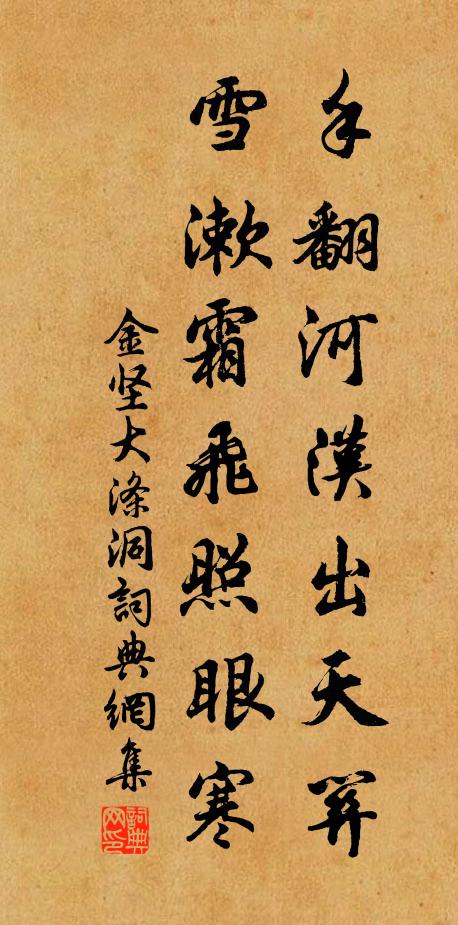 手翻河漢出天關
雪漱霜飛照眼寒
金坚大涤洞詞典網集
詞典
网印